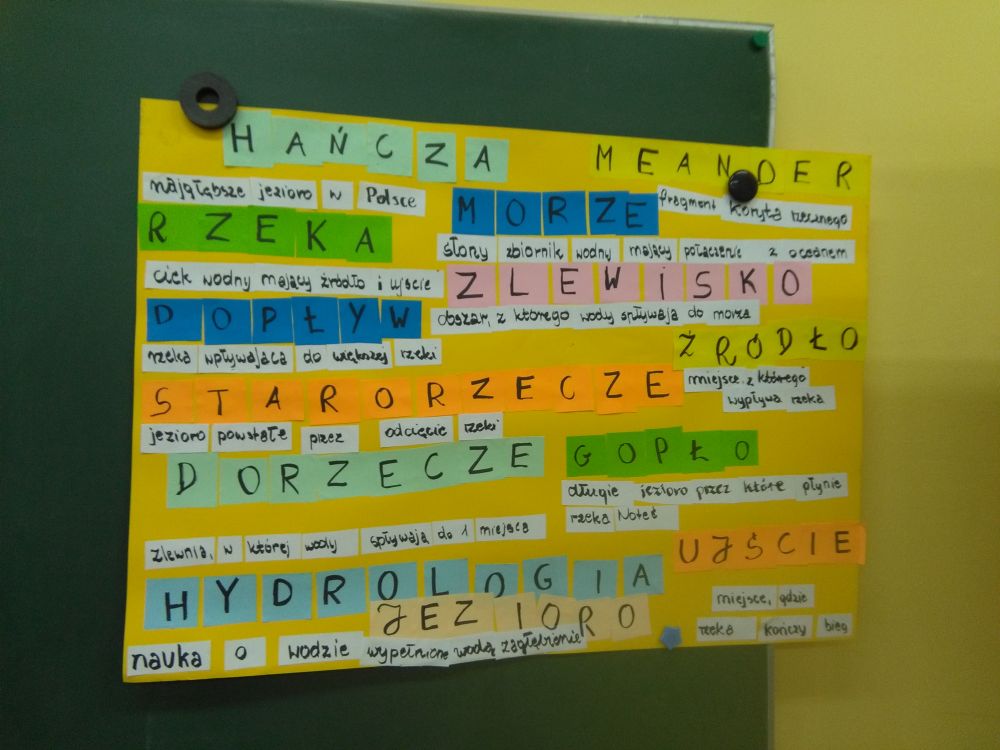 HAŃCZA
najgłębsze jezioro w Polsce
MEANDER
fragment koryta rzecznego
RZEKA
ciek wodny mający źródło i ujście
MORZE
słony zbiornik wodny mający połączenie z oceanem
ZLEWISKO
obszar, z którego wody spływają do morza
DOPŁYW
rzeka wpływająca do większej rzeki
ŹRÓDŁO
miejsce, z którego
wypływa rzeka
STARORZECZE
jezioro powstałe przez odcięcie rzeki
DORZECZE
zlewnia, w której wody spływają do 1 miejsca
GOPŁO
długie jezioro przez które płynie
rzeka Noteć
UJŚCIE
miejsce, gdzie
rzeka kończy bieg
HYDROLOGIA
nauka o wodzie
JEZIORO
wypełnione wodą zagłębienie